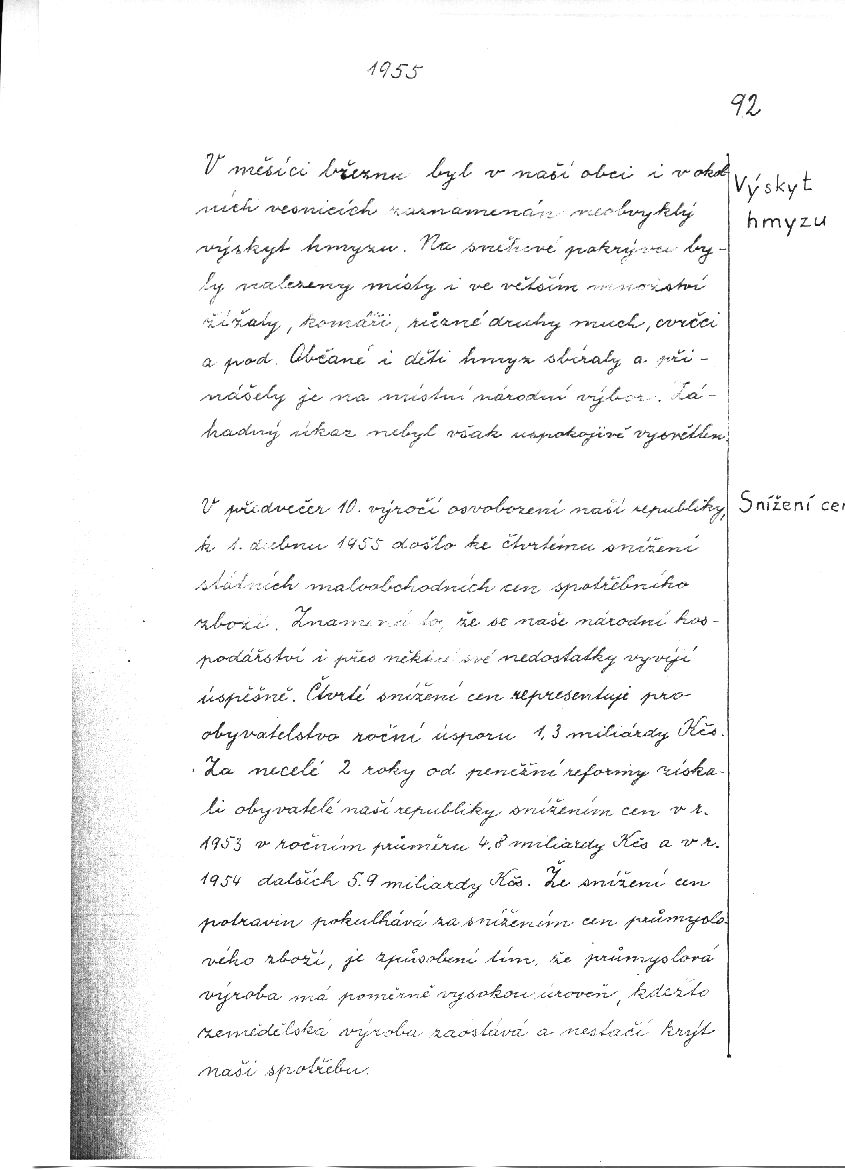 1955
92
V měsíci březnu byl v naší obci i v okol
Výskyt
ních vesnicích zaznamenán neobvyklý
hmyzu
výskyt hmyzu. Na sněhové pokrývce by-
ly nalezeny místy i ve větším množství
žížaly, komáři, různé druhy much, cvrčci
a pod. Občané i děti hmyz sbíraly a při-
nášely je na místní národní výbor. Zá-
hadný úkaz nebyl však uspokojivě vysvětlen.
V předvečer 10. výročí osvobození naší republiky,
Snížení cen
k 1. dubnu 1955 došlo ke čtvrtému snížení
státních maloobchodních cen spotřebního
zboží. Znamená to, že se naše národní hos-
podářství i přes některé své nedostatky vyvíjí
úspěšně. Čtvrté snížení cen representuje pro
obyvatelstvo roční úsporu 1,3 miliardy Kčs.
Za necelé 2 roky od peněžní reformy získa-
li obyvatelé naší republiky snížením cen v r.
1953 v ročním průměru 4,8 miliardy Kčs a v r.
1954 dalších 5.9 miliardy Kčs. Že snížení cen
potravin pokulhává za snížením cen průmyslo-
vého zboží, je způsobení tím, že průmyslová
výroba má poměrně vysokou úroveň, kdežto
zemědělská výroba zaostává a nestačí krýt
naši spotřebu.